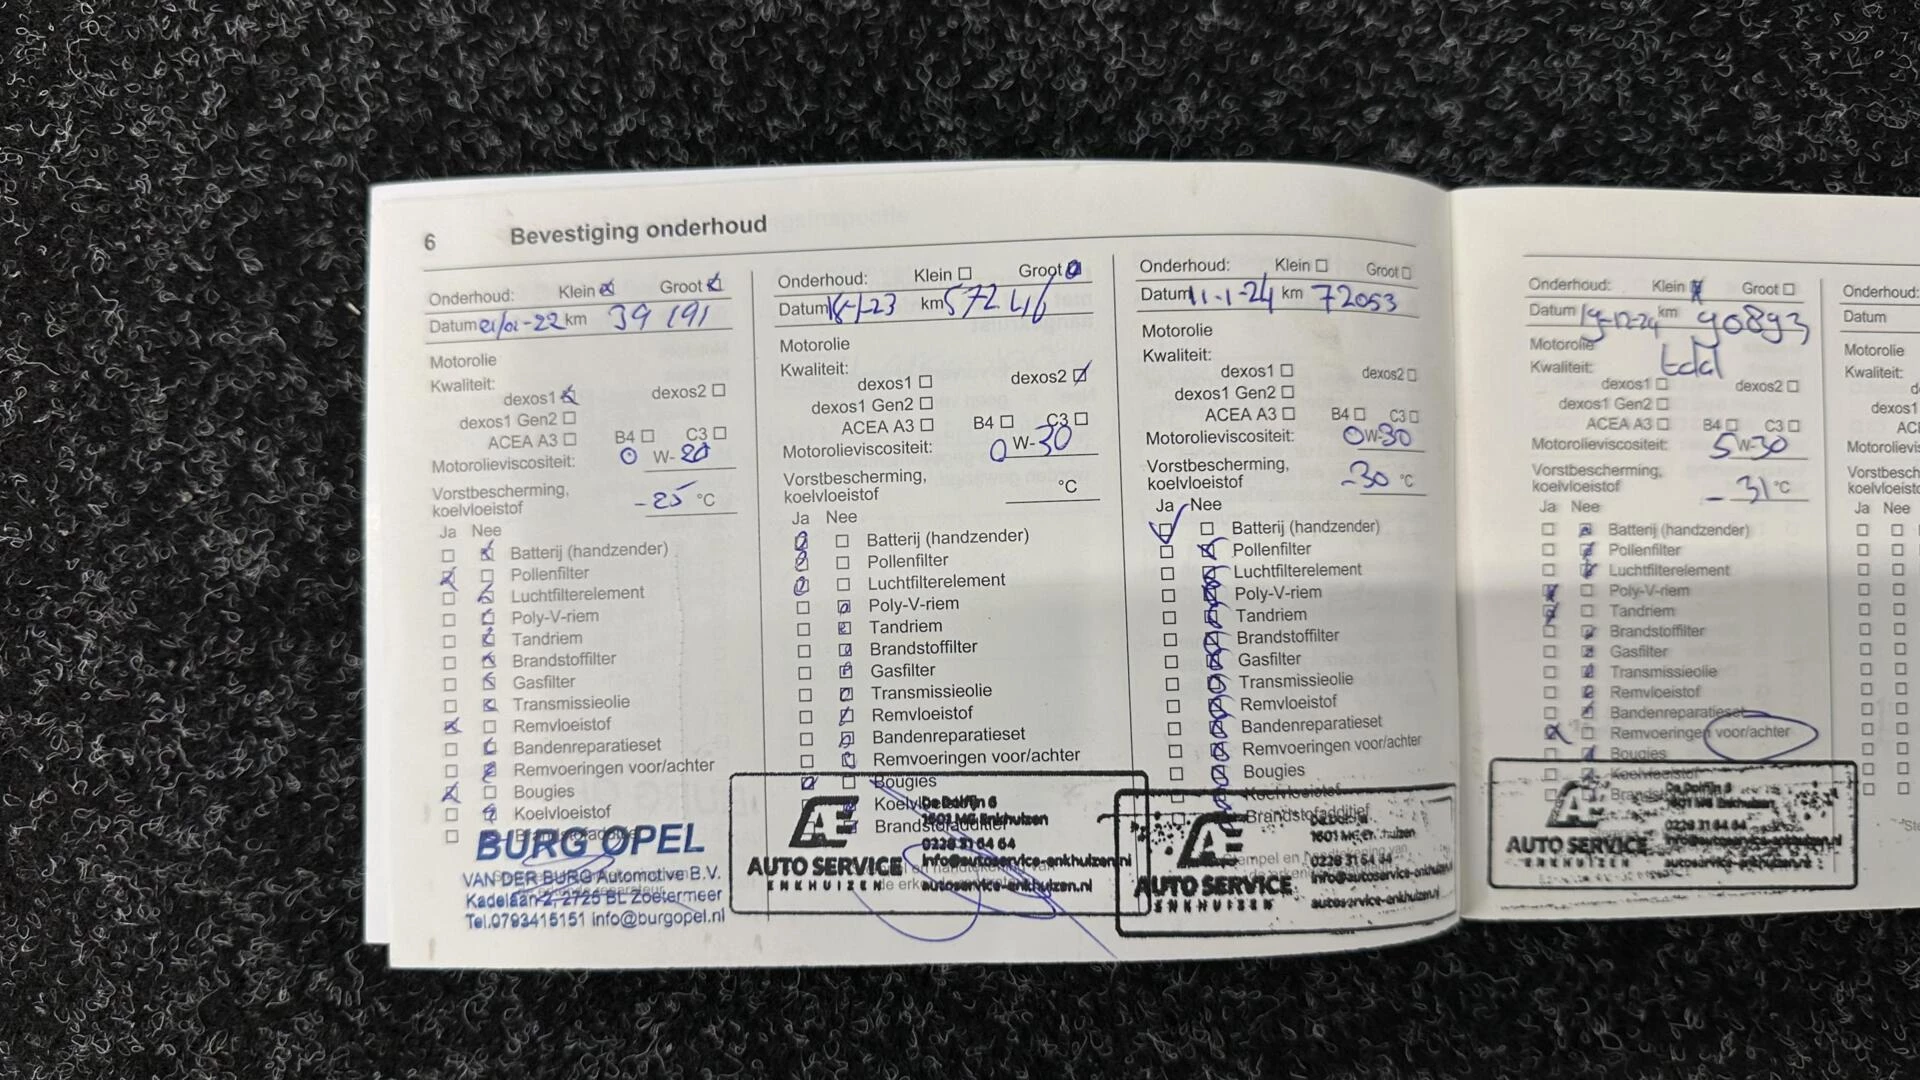 6 Bevestiging onderhoud
Onderhoud: Klein Groot
Datum 21/01-22 km 39191
Motorolie
Kwaliteit:
dexos1 dexos2
dexos1 Gen2
ACEA A3 B4 C3
Motorolieviscositeit: 0 W-20
Vorstbescherming,
koelvloeistof -25 °C
Ja Nee
Batterij (handzender)
Pollenfilter
Luchtfilterelement
Poly-V-riem
Tandriem
Brandstoffilter
Gasfilter
Transmissieolie
Remvloeistof
Bandenreparatieset
Remvoeringen voor/achter
Bougies
Koelvloeistof
BURG OPEL
VAN DER BURG Automotive B.V.
Kadelaan 2, 2725 BL Zoetermeer
Tel.0793415151 info@burgopel.nl
Onderhoud: Klein Groot
Datum 18-1-23 km 57246
Motorolie
Kwaliteit:
dexos1 dexos2
dexos1 Gen2
ACEA A3 B4 C3
Motorolieviscositeit: 0 W-30
Vorstbescherming,
koelvloeistof °C
Ja Nee
Batterij (handzender)
Pollenfilter
Luchtfilterelement
Poly-V-riem
Tandriem
Brandstoffilter
Gasfilter
Transmissieolie
Remvloeistof
Bandenreparatieset
Remvoeringen voor/achter
Bougies
Brandstofadditief
AE
AUTO SERVICE
ENKHUIZEN
De Dolfijn 6
1601 MG Enkhuizen
0228 31 64 64
info@autoservice-enkhuizen.nl
autoservice-enkhuizen.nl
Onderhoud: Klein Groot
Datum 11-1-24 km 72053
Motorolie
Kwaliteit:
dexos1 dexos2
dexos1 Gen2
ACEA A3 B4 C3
Motorolieviscositeit: 0W-30
Vorstbescherming,
koelvloeistof -30 °C
Ja Nee
Batterij (handzender)
Pollenfilter
Luchtfilterelement
Poly-V-riem
Tandriem
Brandstoffilter
Gasfilter
Transmissieolie
Remvloeistof
Bandenreparatieset
Remvoeringen voor/achter
Bougies
Koelvloeistof
Brandstofadditief
Stempel en Handtekening van
AUTO SERVICE
ENKHUIZEN
0228 31 64 64
info@autoservice-enkhuizen.nl
autoservice-enkhuizen.nl
Onderhoud: Klein Groot
Datum 19-12-24 km 90893
Motorolie
Kwaliteit:
dexos1 dexos2
dexos1 Gen2
ACEA A3 B4 C3
Motorolieviscositeit: 5W-30
Vorstbescherming,
koelvloeistof -31 °C
Ja Nee
Batterij (handzender)
Pollenfilter
Luchtfilterelement
Poly-V-riem
Tandriem
Brandstoffilter
Gasfilter
Transmissieolie
Remvloeistof
Bandenreparatieset
Remvoeringen voor/achter
Bougies
Koelvloeistof
AUTO SERVICE
ENKHUIZEN
De Dolfijn 6
1601 MG Enkhuizen
0228 31 64 64
autoservice-enkhuizen.nl
Onderhoud:
Datum
Motorolie
Kwaliteit:
dexos1
Ja Nee